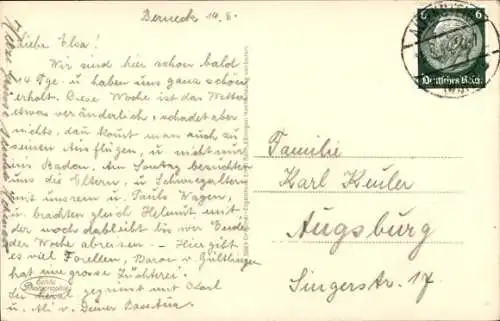 Berneck 14. 8.
Liebe Elsa!
Wir sind hier schon bald
14 Tge. u. haben uns ganz schön
erholt. Diese Woche ist das Wetter
etwas veränderlich, schadet aber
nichts, dau kout man auch zu
seinen Ausflügen, u. nicht nur
ins Baden. Am Sontag besuchten
uns die Eltern, u. Schwiegeltern
mit unsrem u. Pauls Wagen,
u. brachten gleich Helmut mit
der noch dableibt bis wir Ende
der Woche abreisen. - Hier gibt
es viel Forellen, Baron v. Gültlingen
hat eine grosse Züchterei.
gegrüsst mit Karl
u. Ali v. Deiner
Familie
Karl Keuler
Augsburg
Singerstr. 17.
6 6
Deutsches Reich
Echte
Photographie